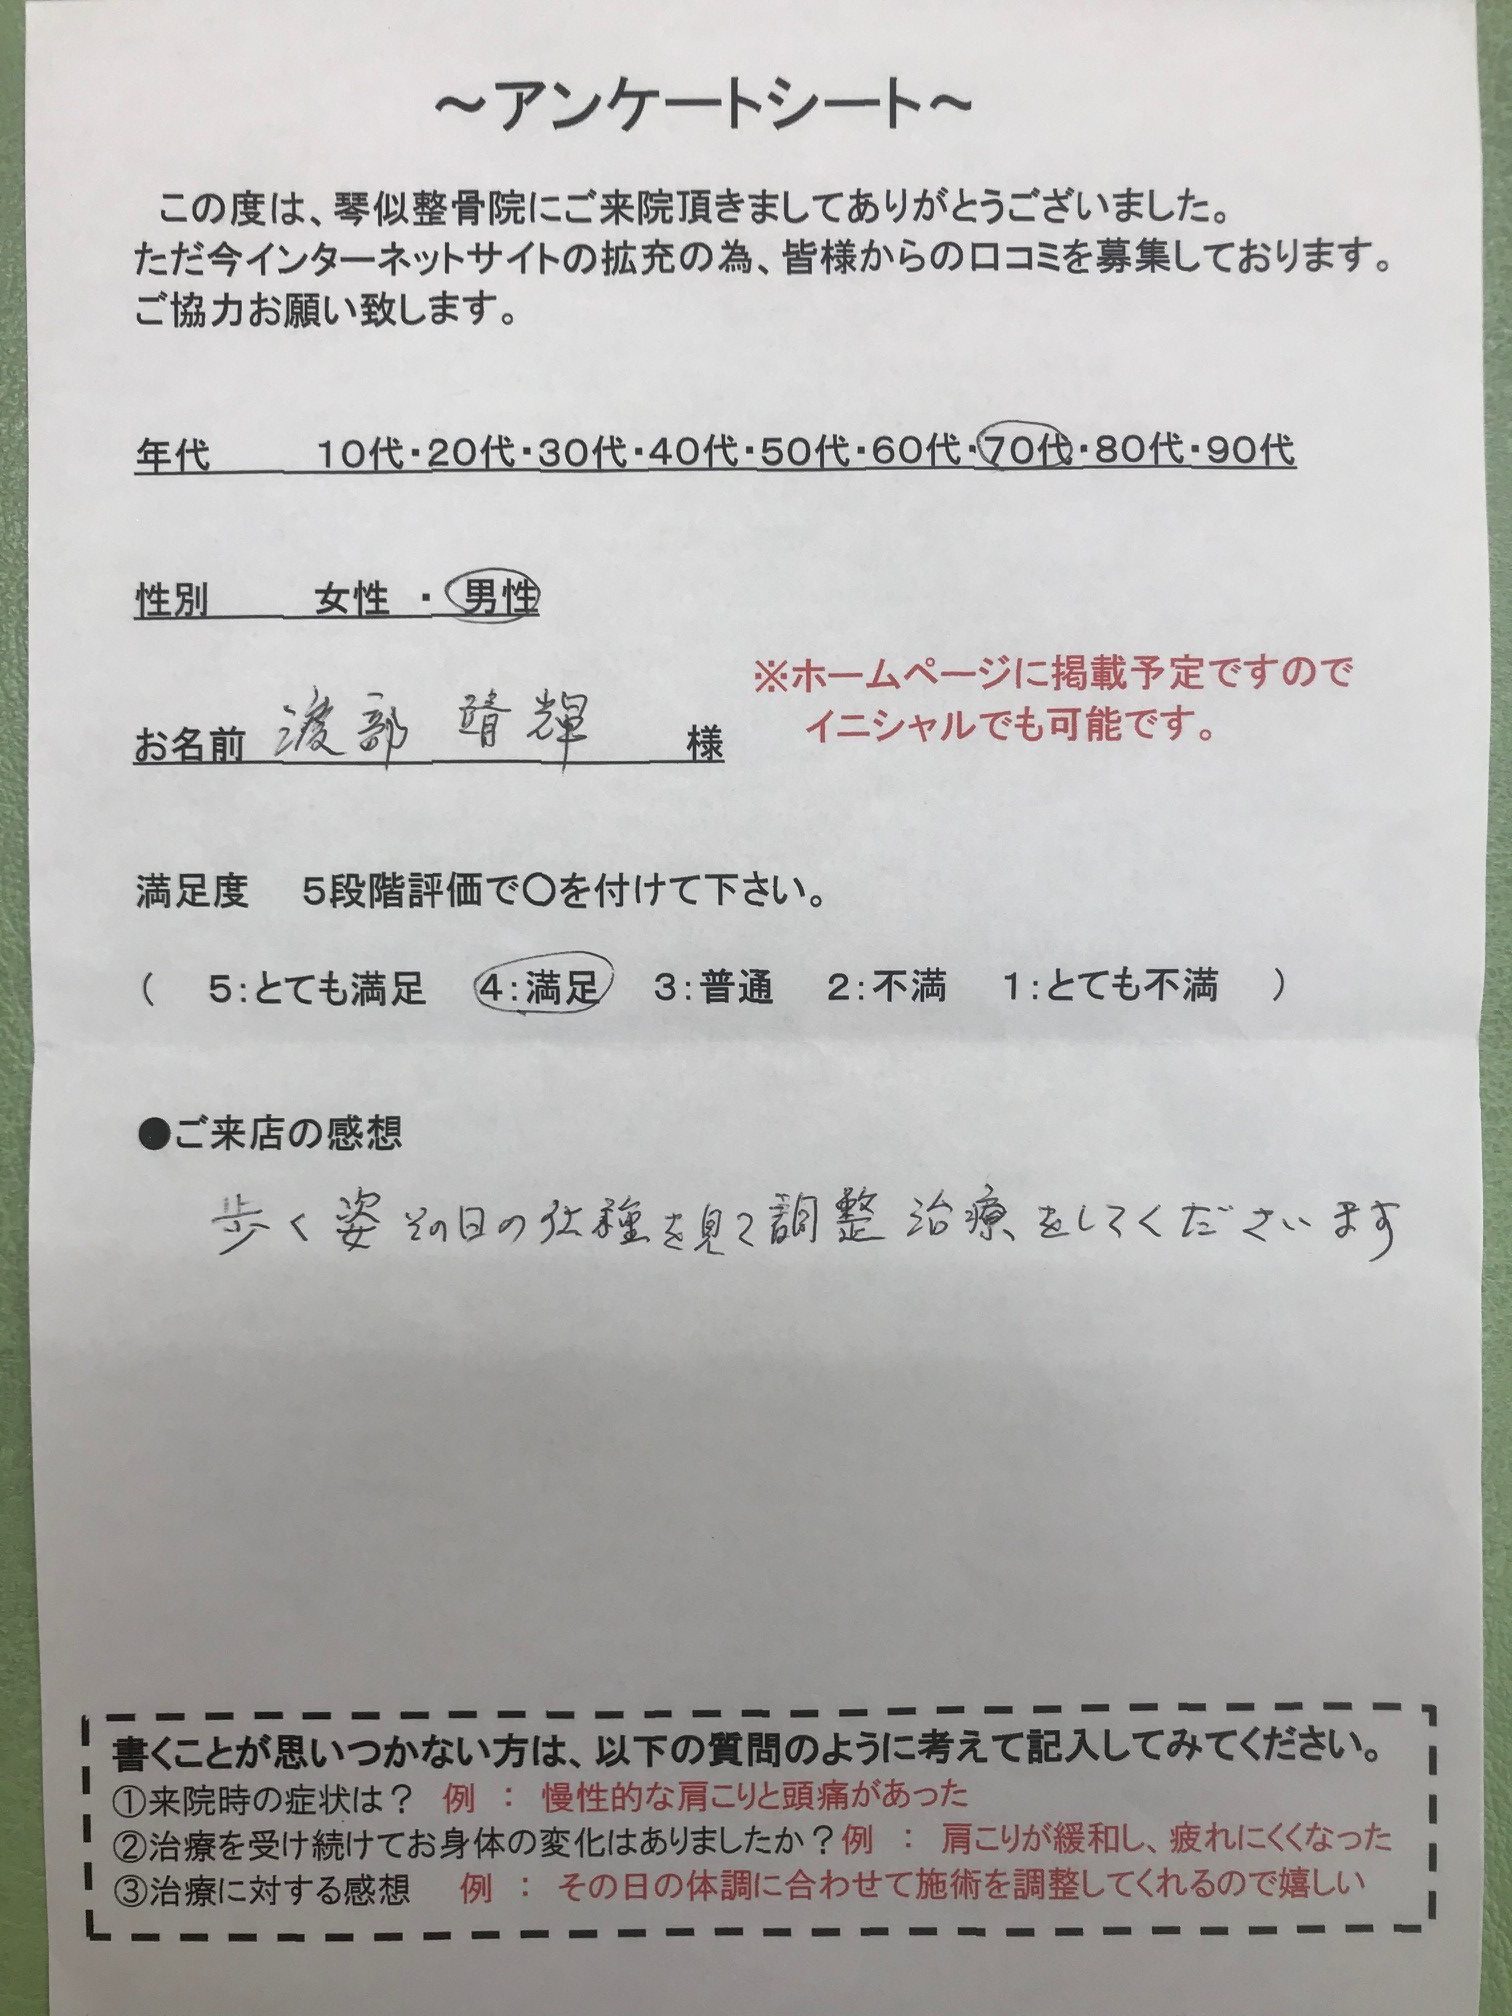 ～アンケートシート～
この度は、琴似整骨院にご来院頂きましてありがとうございました。
ただ今インターネットサイトの拡充の為、皆様からの口コミを募集しております。
ご協力お願い致します。
年代 10代・20代・30代・40代・50代・60代・70代・80代・90代
性別 女性 ・ 男性
お名前 渡部 晴輝 様
※ホームページに掲載予定ですので
イニシャルでも可能です。
満足度 5段階評価で〇を付けて下さい。
( 5：とても満足 4：満足 3：普通 2：不満 1：とても不満 )
●ご来店の感想
歩く姿その日の仕種を見て調整治療をしてくださいます
書くことが思いつかない方は、以下の質問のように考えて記入してみてください。
①来院時の症状は？ 例 ： 慢性的な肩こりと頭痛があった
②治療を受け続けてお身体の変化はありましたか？例 ： 肩こりが緩和し、疲れにくくなった
③治療に対する感想 例 ： その日の体調に合わせて施術を調整してくれるので嬉しい